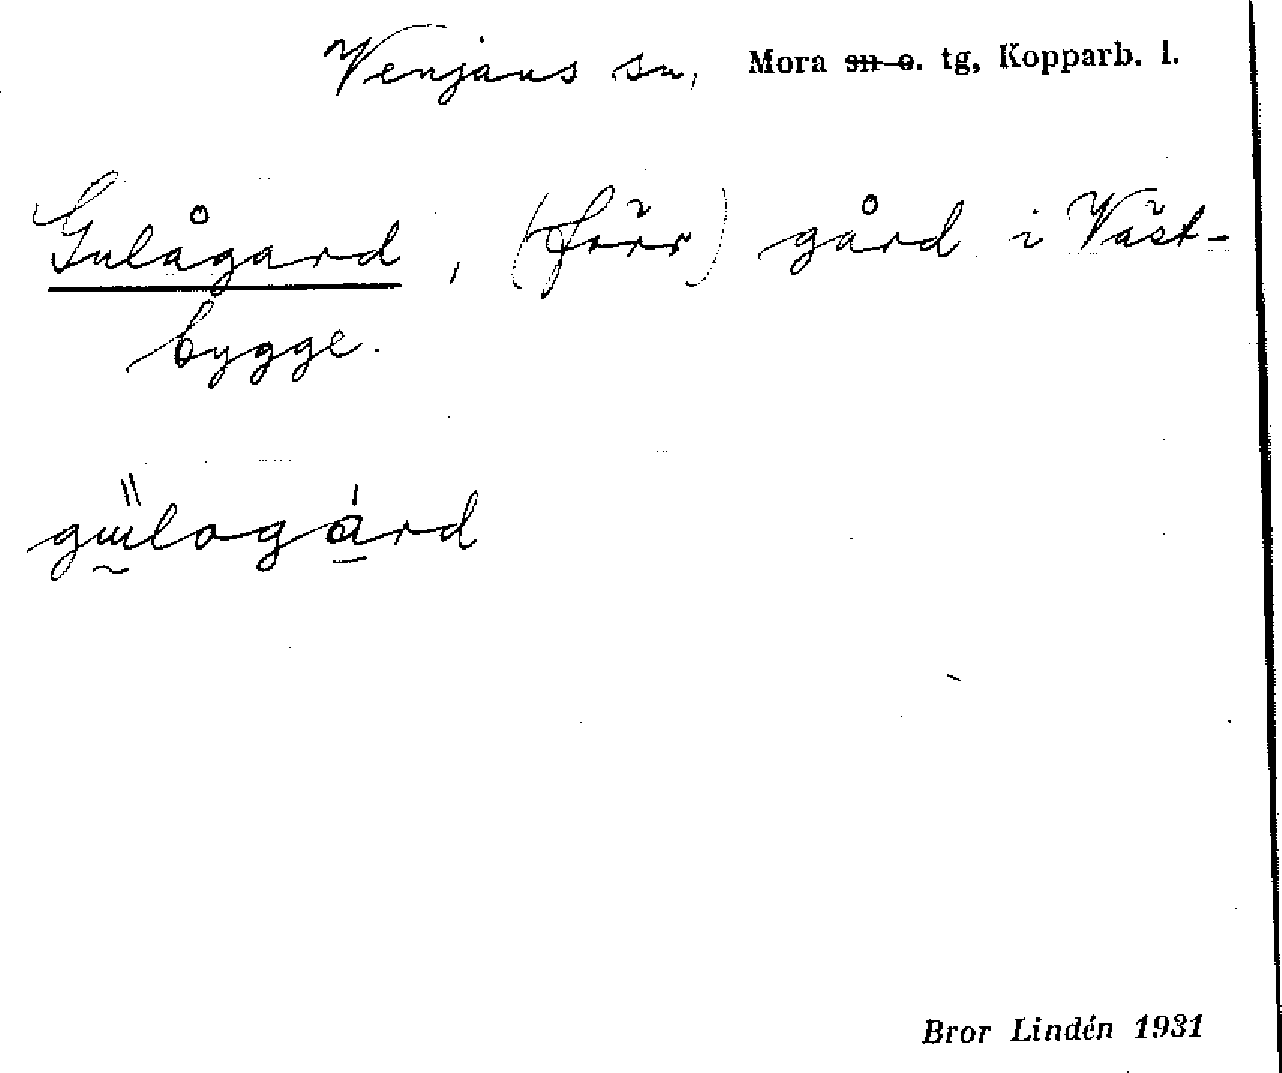 Venjans sn, Mora ~~sn o.~~ tg, Kopparb. l.
Gulågard, (förr) gård i Väst-
bygge.
gɯ̈logård
Bror Lindén 1931